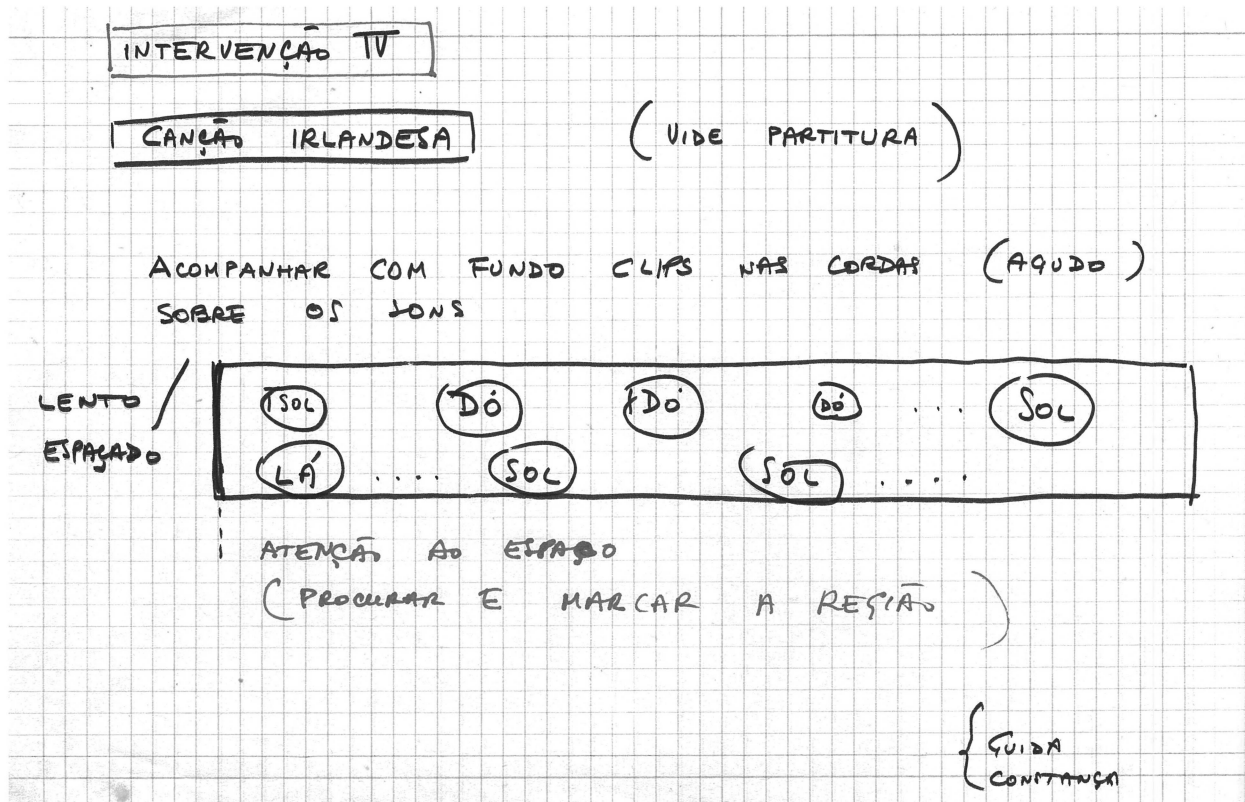 INTERVENÇÃO IV
CANÇÃO IRLANDESA (VIDE PARTITURA)
ACOMPANHAR COM FUNDO CLIPS NAS CORDAS (AGUDO)
SOBRE OS SONS
LENTO
ESPAÇADO
SOL DÓ DÓ DÓ .... SOL
LÁ .... SOL SOL ....
ATENÇÃO AO ESPAÇO
(PROCURAR E MARCAR A REGIÃO)
GUIDA
CONSTANÇA